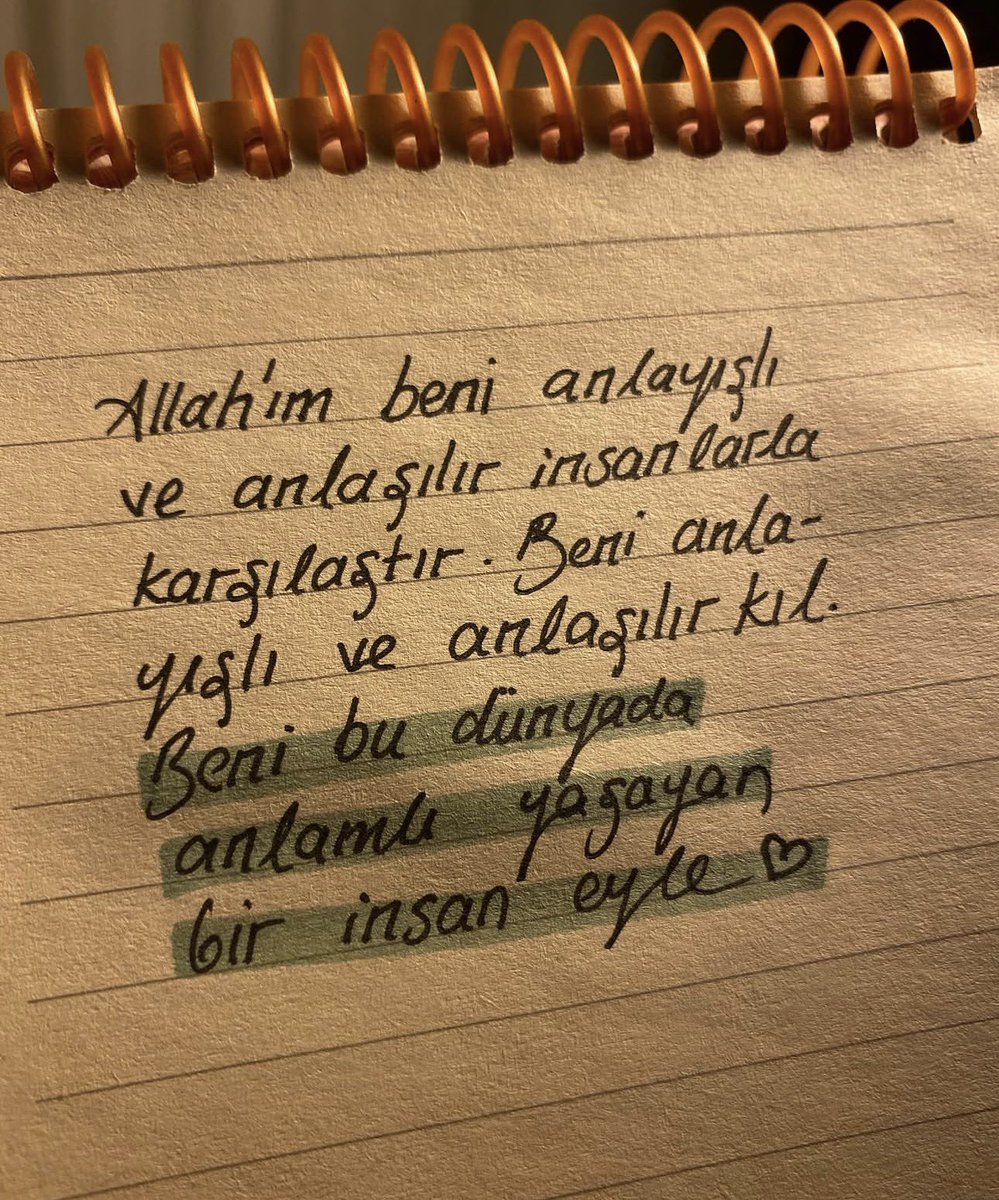 Allah'ım beni anlayışlı
ve anlaşılır insanlarla
karşılaştır. Beni anla-
yışlı ve anlaşılır kıl.
Beni bu dünyada
anlamlı yaşayan
bir insan eyle ♡